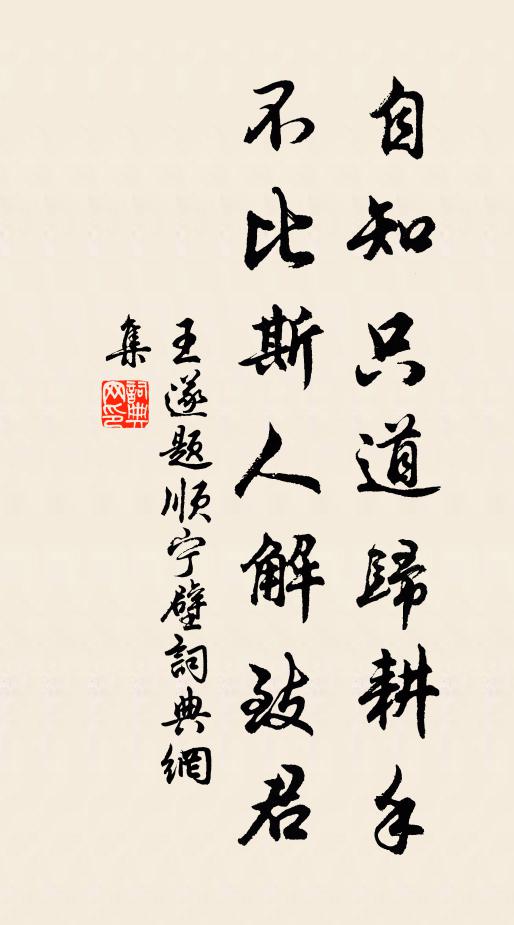 自知只道歸耕手
不比斯人解致君
王遂题顺宁壁詞典網
集
詞典
网印